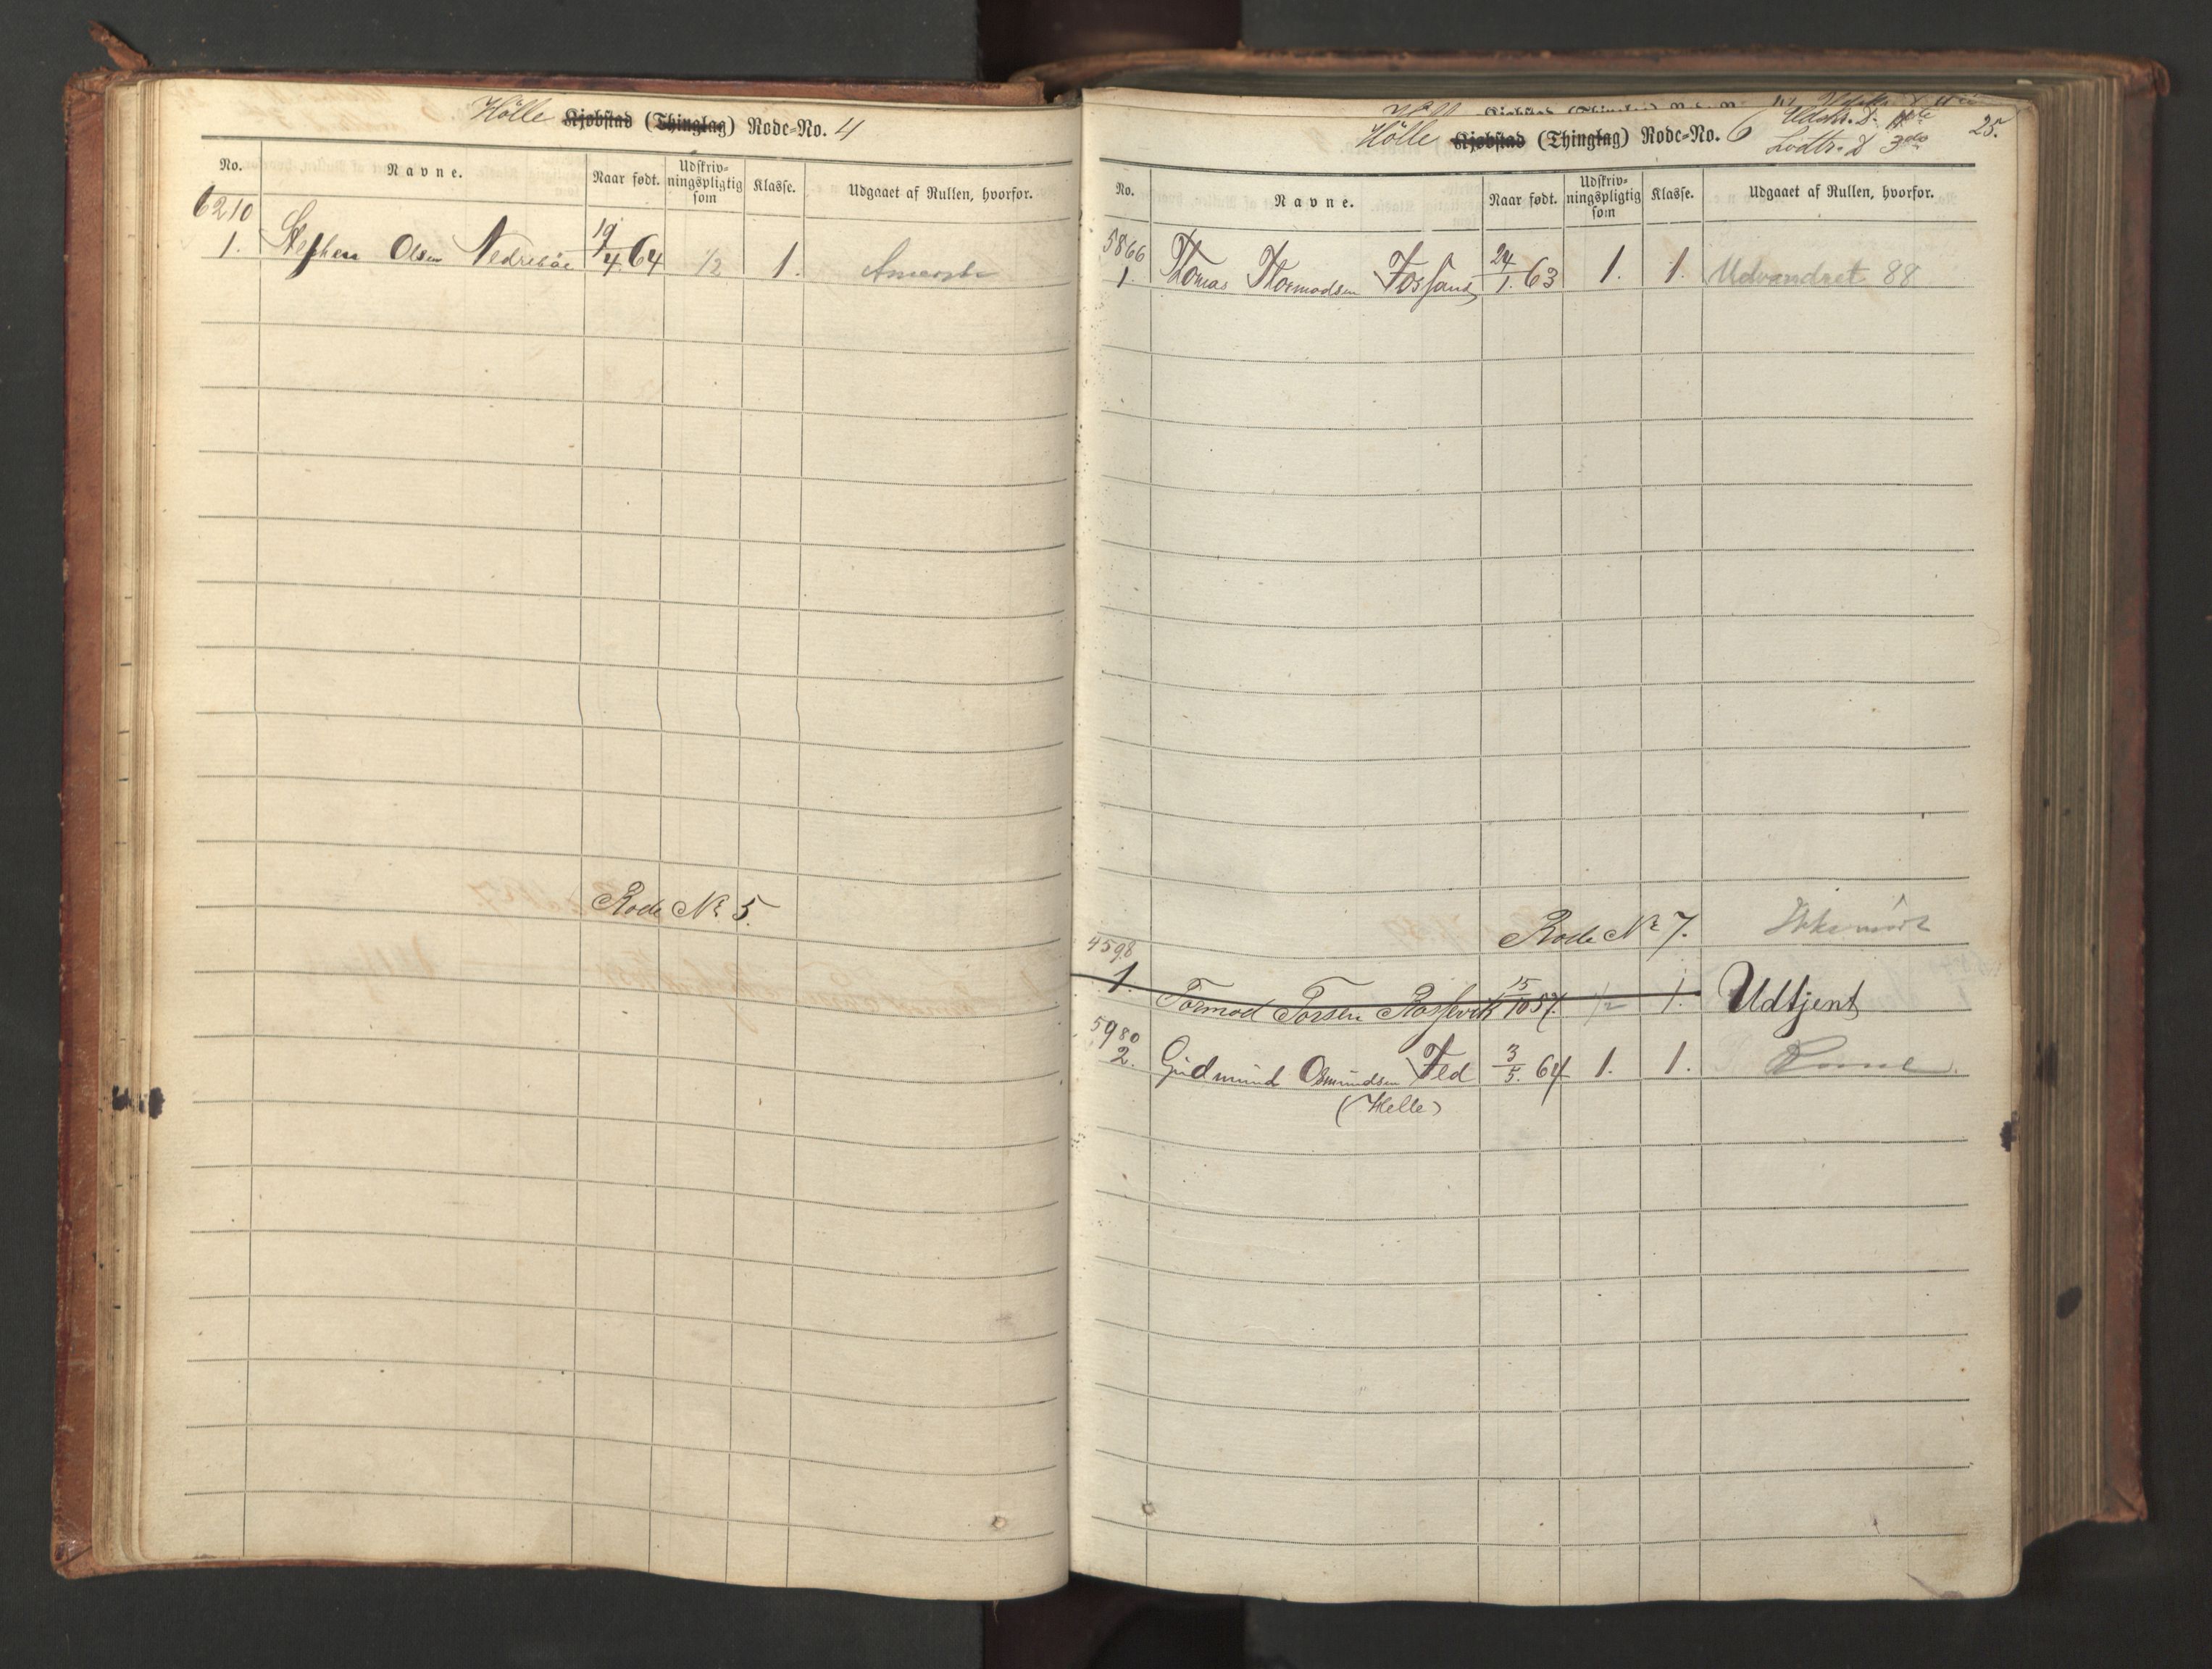 Hölle Kjøbstad (Thinglag) Rode-No. 4
No. Navne. Naar født. Udskriv-ningspligtig som Klasse. Udgaaet af Rullen, hvorfor.
6210
1. Stephen Olsen Nedrebøe 19/4 64 1/2 1.
Rode No 5.
Hölle Kjøbstad (Thinglag) Rode-No. 6 Udskr. D.
Lodtr. D 3die 25.
No. Navne. Naar født. Udskriv-ningspligtig som Klasse. Udgaaet af Rullen, hvorfor.
5866
1. Thomas Thormodsen Fossand 24/1. 63 1. 1. Udvandret 88
Rode No 7. Ikke mødt
4598
1. Tormod Torsen Rossevik 15/10 57. 1/2 1. Udtjent
5980
2. Gudmund Osmundsen Fed 3/5. 64 1. 1.
(Helle)